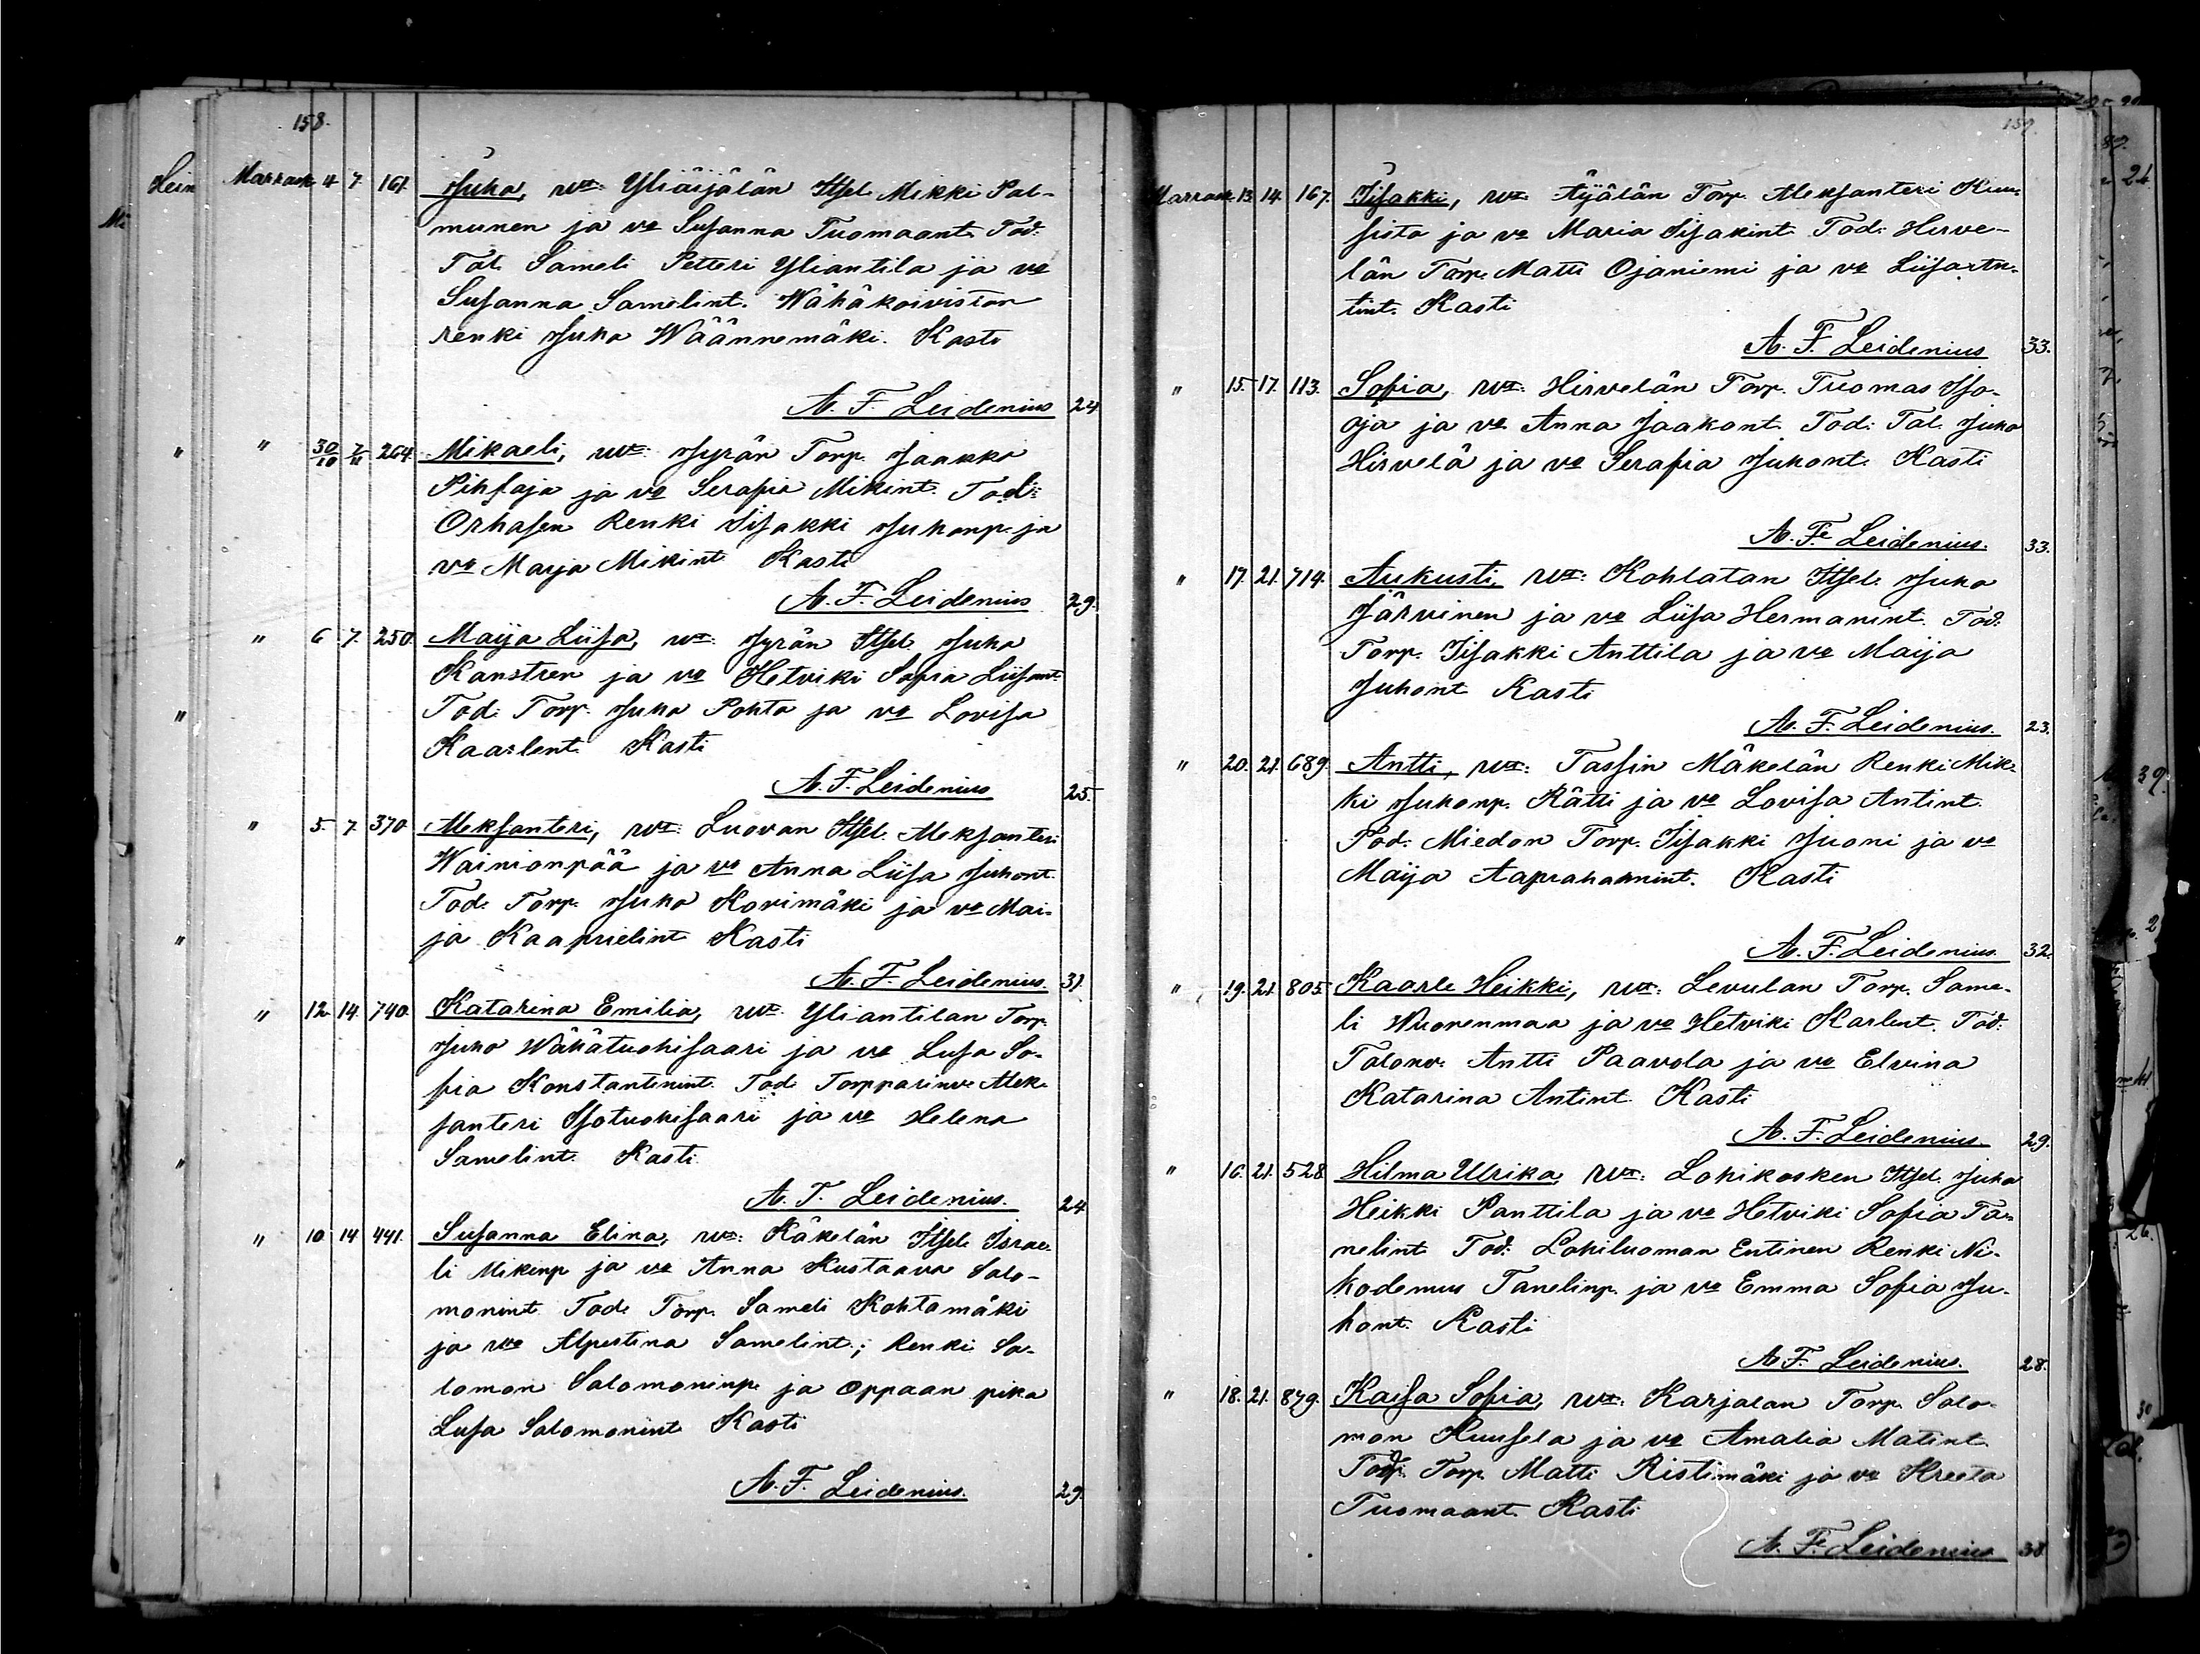 158.
Marrask. 4 7. 161. Juho, wa: Yliäijälän Itsel. Mikki Pal-
munen ja vo Susanna Tuomaant. Tod:
Tal. Sameli Petteri Yliantila ja vo
Susanna Samelint. Wähäkoiviston
renki Juho Väännemäki. Kasti
A. F. Leidenius 24
" 30/10 7/11 264. Mikaeli, wa: Jyrän Torp. Jaakko
Pihlaja ja vo Serafia Mikint. Tod:
Orhasen Renki Iisakki Juhonp. ja
vo Marja Mikint. Kasti
A. F. Leidenius 29.
" 6 7. 250. Maija Liisa, wa: Jyrän Itsel. Juho
Kanstren ja vo Hetviki Sofia Liisant.
Tod: Torp. Juho Pohto ja vo Lovisa
Kaarlent. Kasti
A. F. Leidenius 25.
" 5. 7. 370. Aleksanteri, wa: Luovan Itsel. Aleksanteri
Wainionpää ja vo Anna Liisa Juhont.
Tod: Torp. Juho Korimäki ja vo Mai-
ja Kaaprielint. Kasti
A. F. Leidenius. 31.
" 12. 14. 740. Katarina Emilia, wa: Yliantilan Torp.
Juho Wähätuohisaari ja vo Lusa So-
fia Konstantinint. Tod: Torpparinv. Alek-
santeri Isotuohisaari ja vo Helena
Samelint. Kasti
A. F. Leidenius. 24
" 10 14. 441. Susanna Elina, wa: Käkelän Itsel. Israe-
li Mikinp. ja vo Anna Kustaava Salo-
monint. Tod: Torp. Sameli Kohtamäki
ja vo Alpertina Samelint.; Renki Sa-
lomon Salomoninp. ja oppaan pika
Lusa Salomonint. Kasti
A. F. Leidenius. 29.
159.
Marrask. 13. 14. 167. Iisakki, wa: Äijälän Torp. Aleksanteri Kuu-
sisto ja vo Maria Iisakint. Tod: Hirve-
län Torp. Matti Ojaniemi ja vo Liisa An-
tint. Kasti
A. F. Leidenius 33.
" 15. 17. 113. Sofia, wa: Hirvelän Torp. Tuomas Iso-
oja ja vo Anna Jaakont. Tod: Tal. Juho
Hirvelä ja vo Serafia Juhont. Kasti
A. F. Leidenius. 33.
" 17. 21. 714. Aukusti, wa: Kohlatan Itsel. Juho
Järvinen ja vo Liisa Hermanint. Tod:
Torp. Iisakki Anttila ja vo Maija
Juhont. Kasti
A. F. Leidenius. 23.
" 20. 21. 689. Antti, wa: Tassin Mäkelän Renki Mik-
ki Juhonp. Rätti ja vo Lovisa Antint.
Tod: Miedon Torp. Iisakki Juoni ja vo
Maija Aaprahamint. Kasti
A. F. Leidenius. 32.
" 19. 21. 805. Kaarle Heikki, wa: Levulan Torp. Same-
li Wuorenmaa ja vo Hetviki Karlent. Tod:
Talonv. Antti Paavola ja vo Elvina
Katarina Antint. Kasti
A. F. Leidenius. 29.
" 16. 21. 528. Hilma Ulrika, wa: Lohikosken Itsel. Juho
Heikki Panttila ja vo Hetviki Sofia Ta-
nelint. Tod: Lohiluoman Entinen Renki Ni-
kodemus Tanelinp. ja vo Emma Sofia Ju-
hont. Kasti
A. F. Leidenius. 28.
" 18. 21. 879. Kaisa Sofia, wa: Karjalan Torp. Salo-
mon Kuusela ja vo Amalia Matint.
Tod: Torp. Matti Ristimäki ja vo Kreeta
Tuomaant. Kasti
A. F. Leidenius 38.